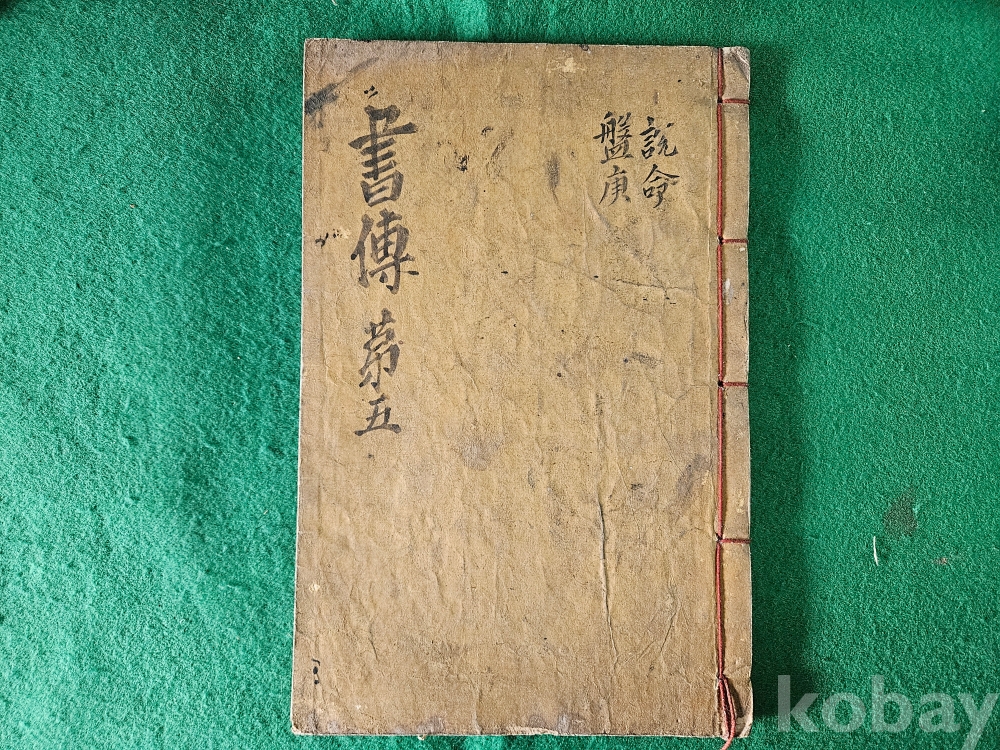 說命
盤庚
書傳 第五
kobay